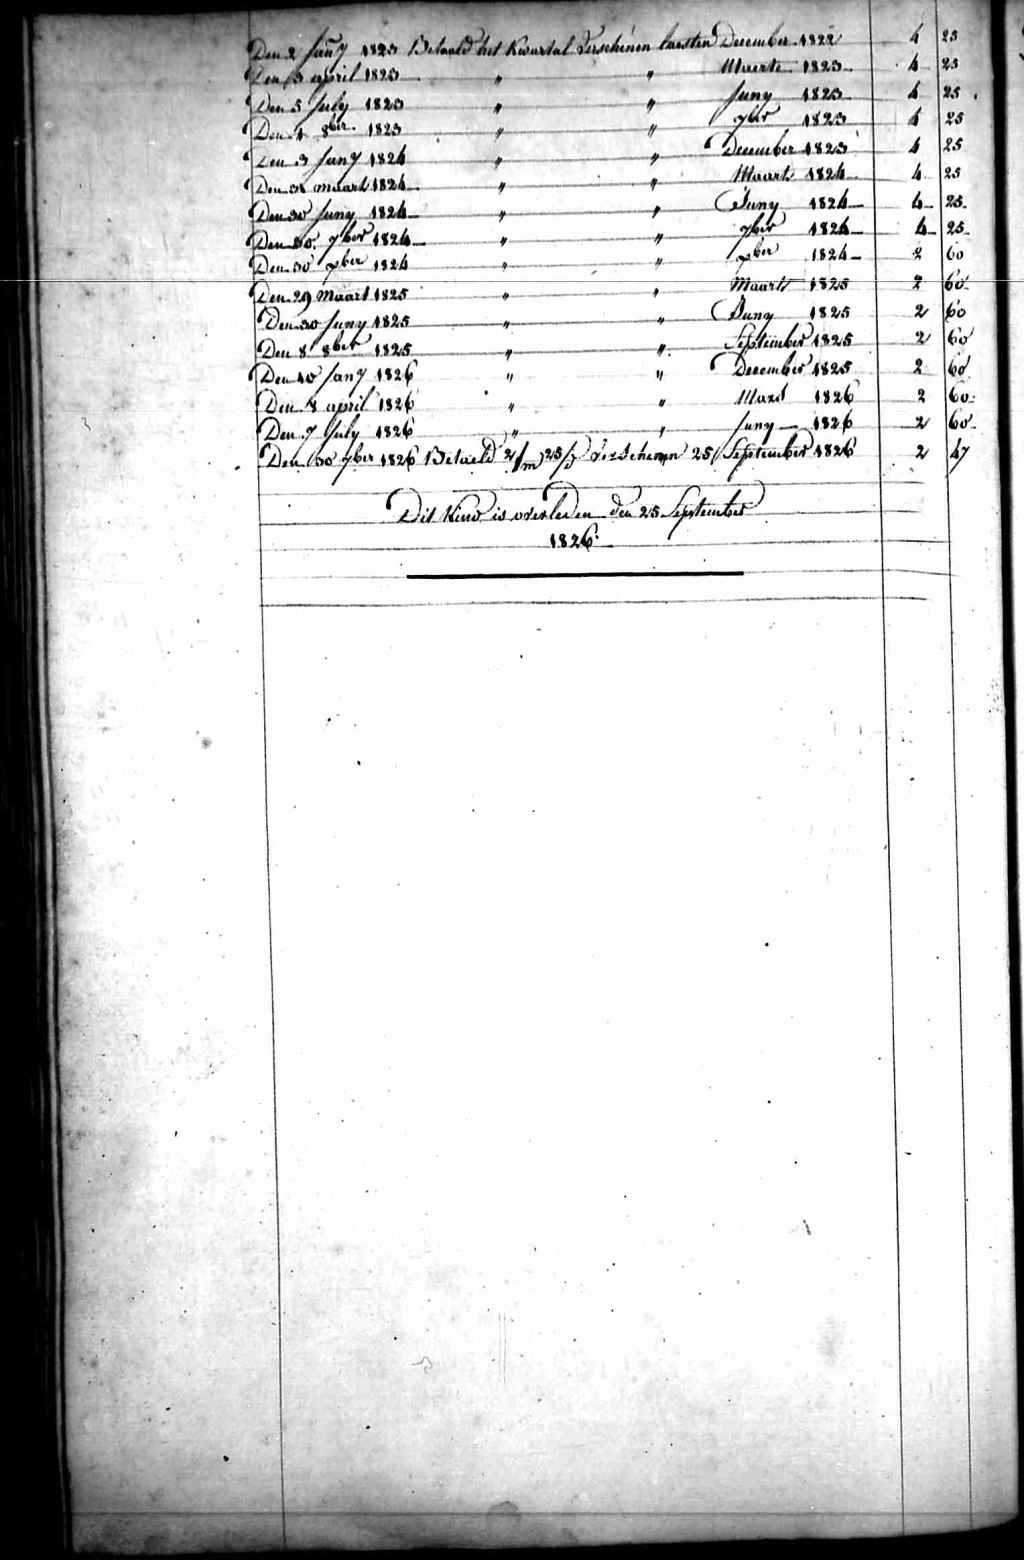 Den 2 Jany 1823 Betaald het Kwartal Verschenen laesten December 1822 4 25
Den 5 april 1823 " " Maert 1823 4 25
Den 5 July 1823 " " Juny 1823 4 25
Den 4 8ber 1823 " " 7ber 1823 4 25
Den 3 Jany 1824 " " December 1823 4 25
Den 31 maart 1824 " " Maart 1824 4 25
Den 30 Juny 1824 " " Juny 1824 4 25
Den 30 7ber 1824 " " 7ber 1824 4 25
Den 30 xber 1824 " " xber 1824 2 60
Den 29 Maart 1825 " " Maart 1825 2 60
Den 30 Juny 1825 " " Juny 1825 2 60
Den 8 8ber 1825 " " September 1825 2 60
Den 10 Jany 1826 " " December 1825 2 60
Den 8 april 1826 " " Mart 1826 2 60
Den 7 July 1826 " " Juny 1826 2 60
Den 30 7ber 1826 Betaeld 2/m 25/d verschenen 25 September 1826 2 47
Dit Kind is overleden den 25 September
1826.